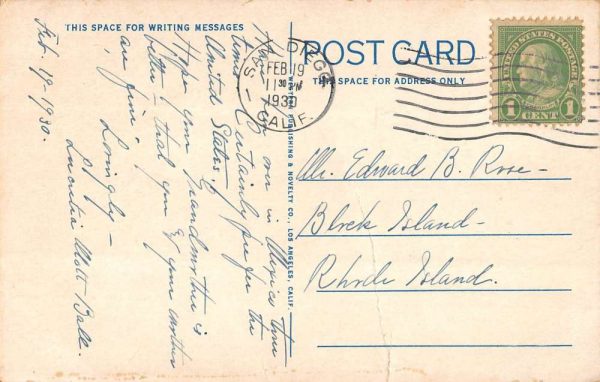 THIS SPACE FOR WRITING MESSAGES
Feb. 19-1930.
over in Mexico
times. Certainly fine for the
United States.
Hope your Grandmother is
better & that you & your mother
are fine.
Lovingly —
Lucretia Mott Ball.
WESTERN PUBLISHING & NOVELTY CO., LOS ANGELES, CALIF.
POST CARD
THIS SPACE FOR ADDRESS ONLY
SAN DIEGO
FEB 19
11 30 PM
1930
CALIF.
UNITED STATES POSTAGE
FRANKLIN
1 CENT 1
Mr. Edward B. Rose —
Block Island —
Rhode Island.